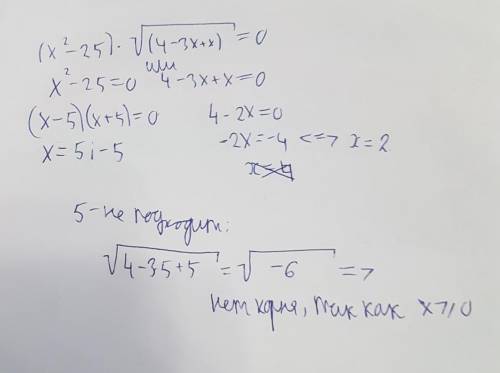 (x²-25)·√(4-3x+x) = 0
или
x²-25=0 4-3x+x=0
(x-5)(x+5)=0 4-2x=0
x=5; -5 -2x=-4 <=> x=2
5-не подходит:
√4-35+5 = √-6 =>
нет корня, так как x>,0